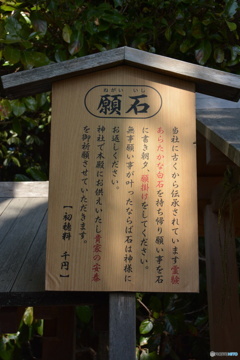 ねがい いし
願石
当社に古くから伝承されています霊験
あらたかな白石を持ち帰り願い事を石
に書き朝夕、願掛けをしてください。
無事願い事が叶ったならば石は神様に
お返しください。
神社で木殿にお供えいたし貴家の安泰
を御祈願させていただきます。
【初穂料 千円】